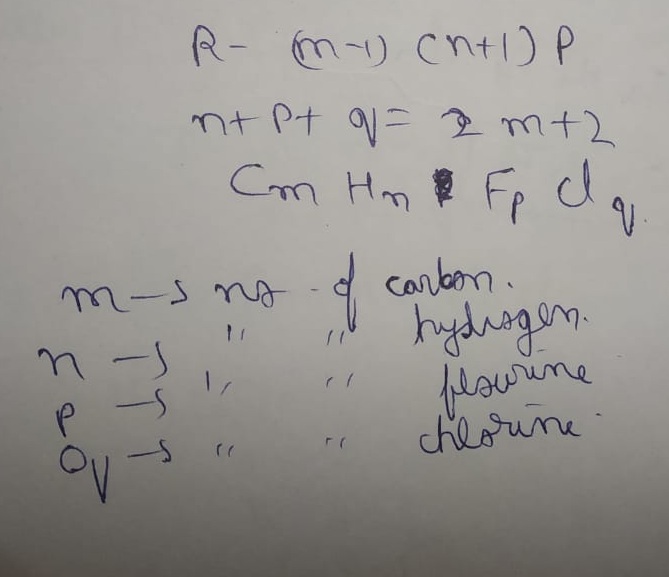 R - (m-1) (n+1) P
n + P + q = 2 m + 2
Cm Hn Fp Clq
m → no of carbon.
n → " " hydrogen.
p → " " flourine
q → " " chlorine